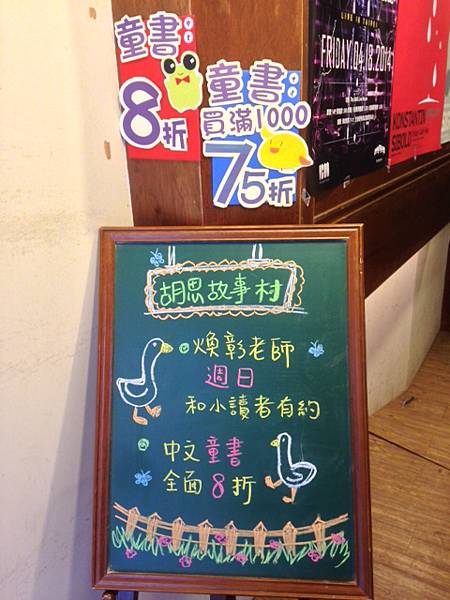 童書
8折
童書
買滿1000
75折
LIVE IN TAIPEI
FRIDAY.04.18.2014
KONSTANTIN
SIBOLD
胡思故事村
煥彰老師
週日
和小讀者有約
中文童書
全面8折